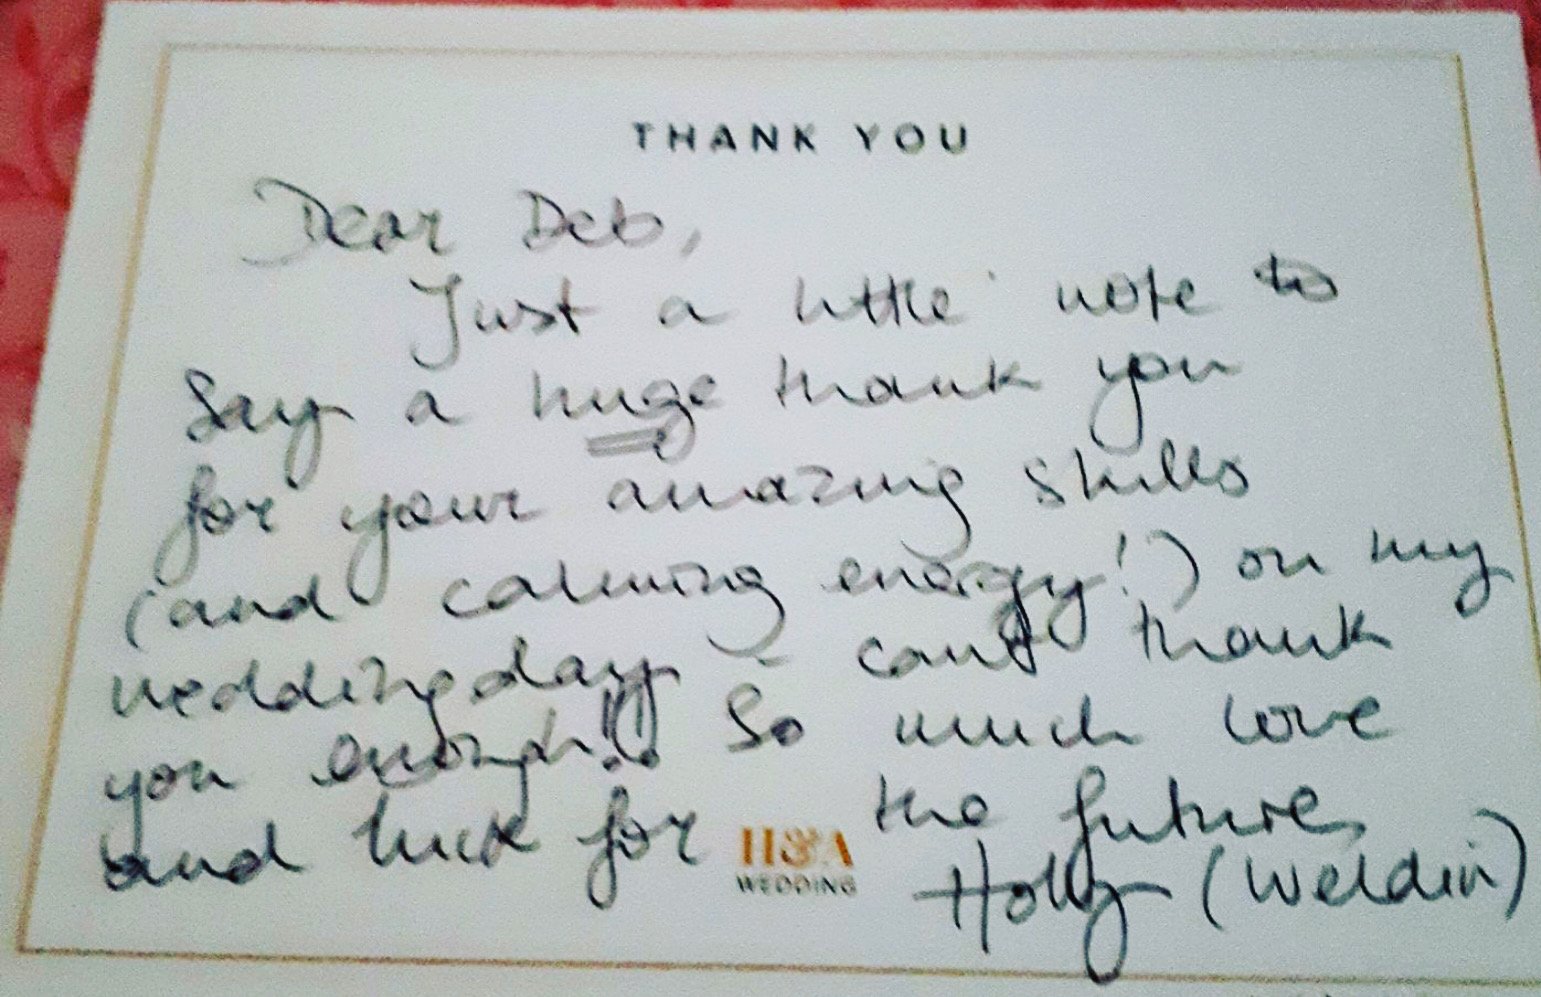 THANK YOU
Dear Deb,
Just a little note to
say a huge thank you
for your amazing skills
(and calming energy!) on my
wedding day - can't thank
you enough!! So much love
and luck for the future,
H&A
WEDDING
Holly (Weldin)